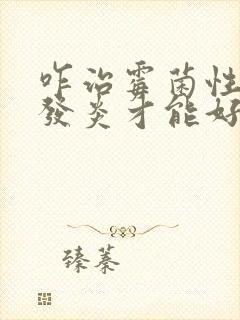 咋治霉菌性
發炎才能好
臻蓁